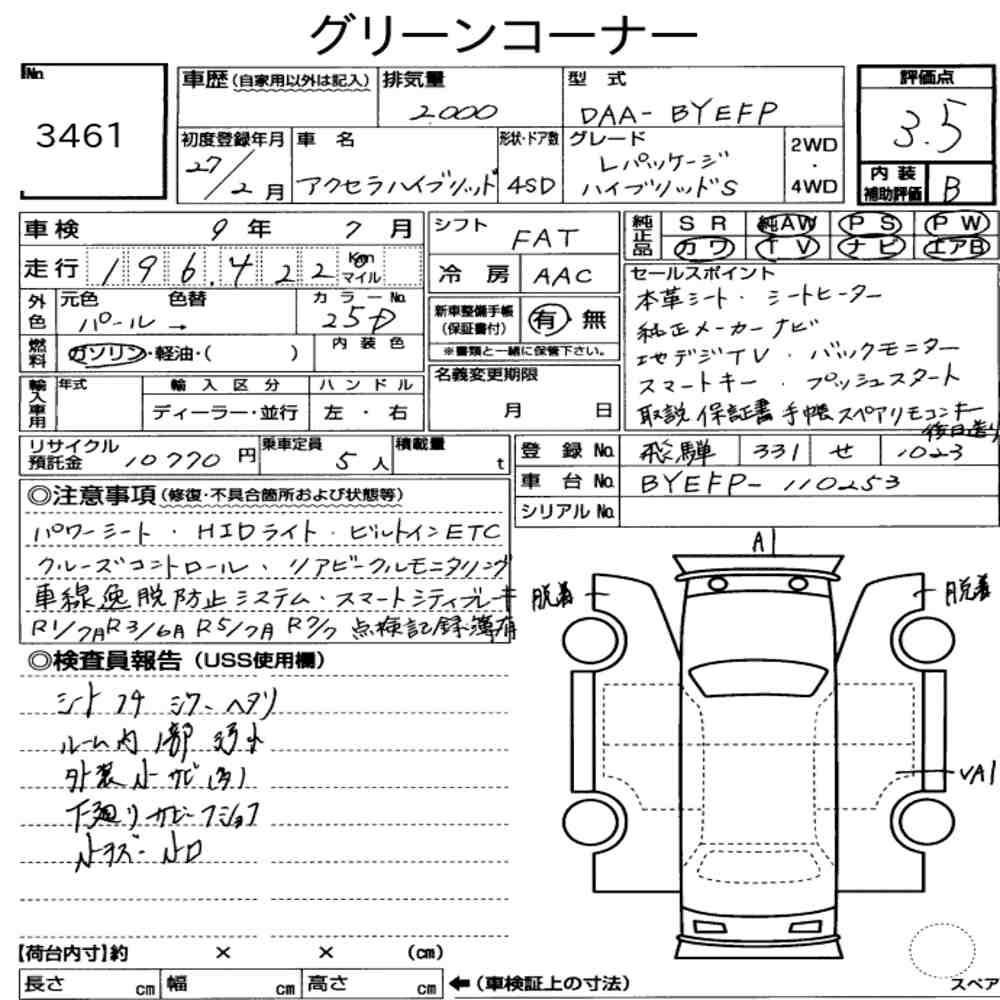 グリーンコーナー
No. 3461
車歴(自家用以外は記入) 排気量 2000 型式 DAA-BYEFP
初度登録年月 27/2月 車名 アクセラハイブリッド 形状・ドア数 4SD グレード Lパッケージ ハイブリッドS 2WD・4WD
評価点 3.5
内装補助評価 B
車検 9年 7月
走行 196,422 Km マイル
外色 元色 パール → 色替 カラーNo. 25D
燃料 ガソリン・軽油・( ) 内装色
輸入車用 年式 輸入区分 ディーラー・並行 ハンドル 左・右
シフト FAT
冷房 AAC
新車整備手帳(保証書付) 有 無
※書類と一緒に保管下さい。
名義変更期限 月 日
純正品 SR 純AW PS PW
カワ TV ナビ エアB
セールスポイント
本革シート・シートヒーター
純正メーカーナビ
地デジTV・バックモニター
スマートキー・プッシュスタート
取説 保証書 手帳 スペアリモコンキー
後日送り
リサイクル預託金 10770円 乗車定員 5人 積載量 t
登録No. 飛騨 331 せ 1023
車台No. BYEFP-110253
シリアルNo.
◎注意事項(修復・不具合箇所および状態等)
パワーシート・HIDライト・ビルトインETC
クルーズコントロール・リアビークルモニタリング
車線逸脱防止システム・スマートシティブレーキ
R1/7月 R3/6月 R5/7月 R7/7 点検記録簿有
◎検査員報告(USS使用欄)
シート スレ シワ ヘタリ
ルーム内 1部
外装 小
下廻り サビ
小キズ 小凹
A1
脱着
脱着
VA1
【荷台内寸】約 × × (cm)
長さ cm 幅 cm 高さ cm ←(車検証上の寸法)
スペア